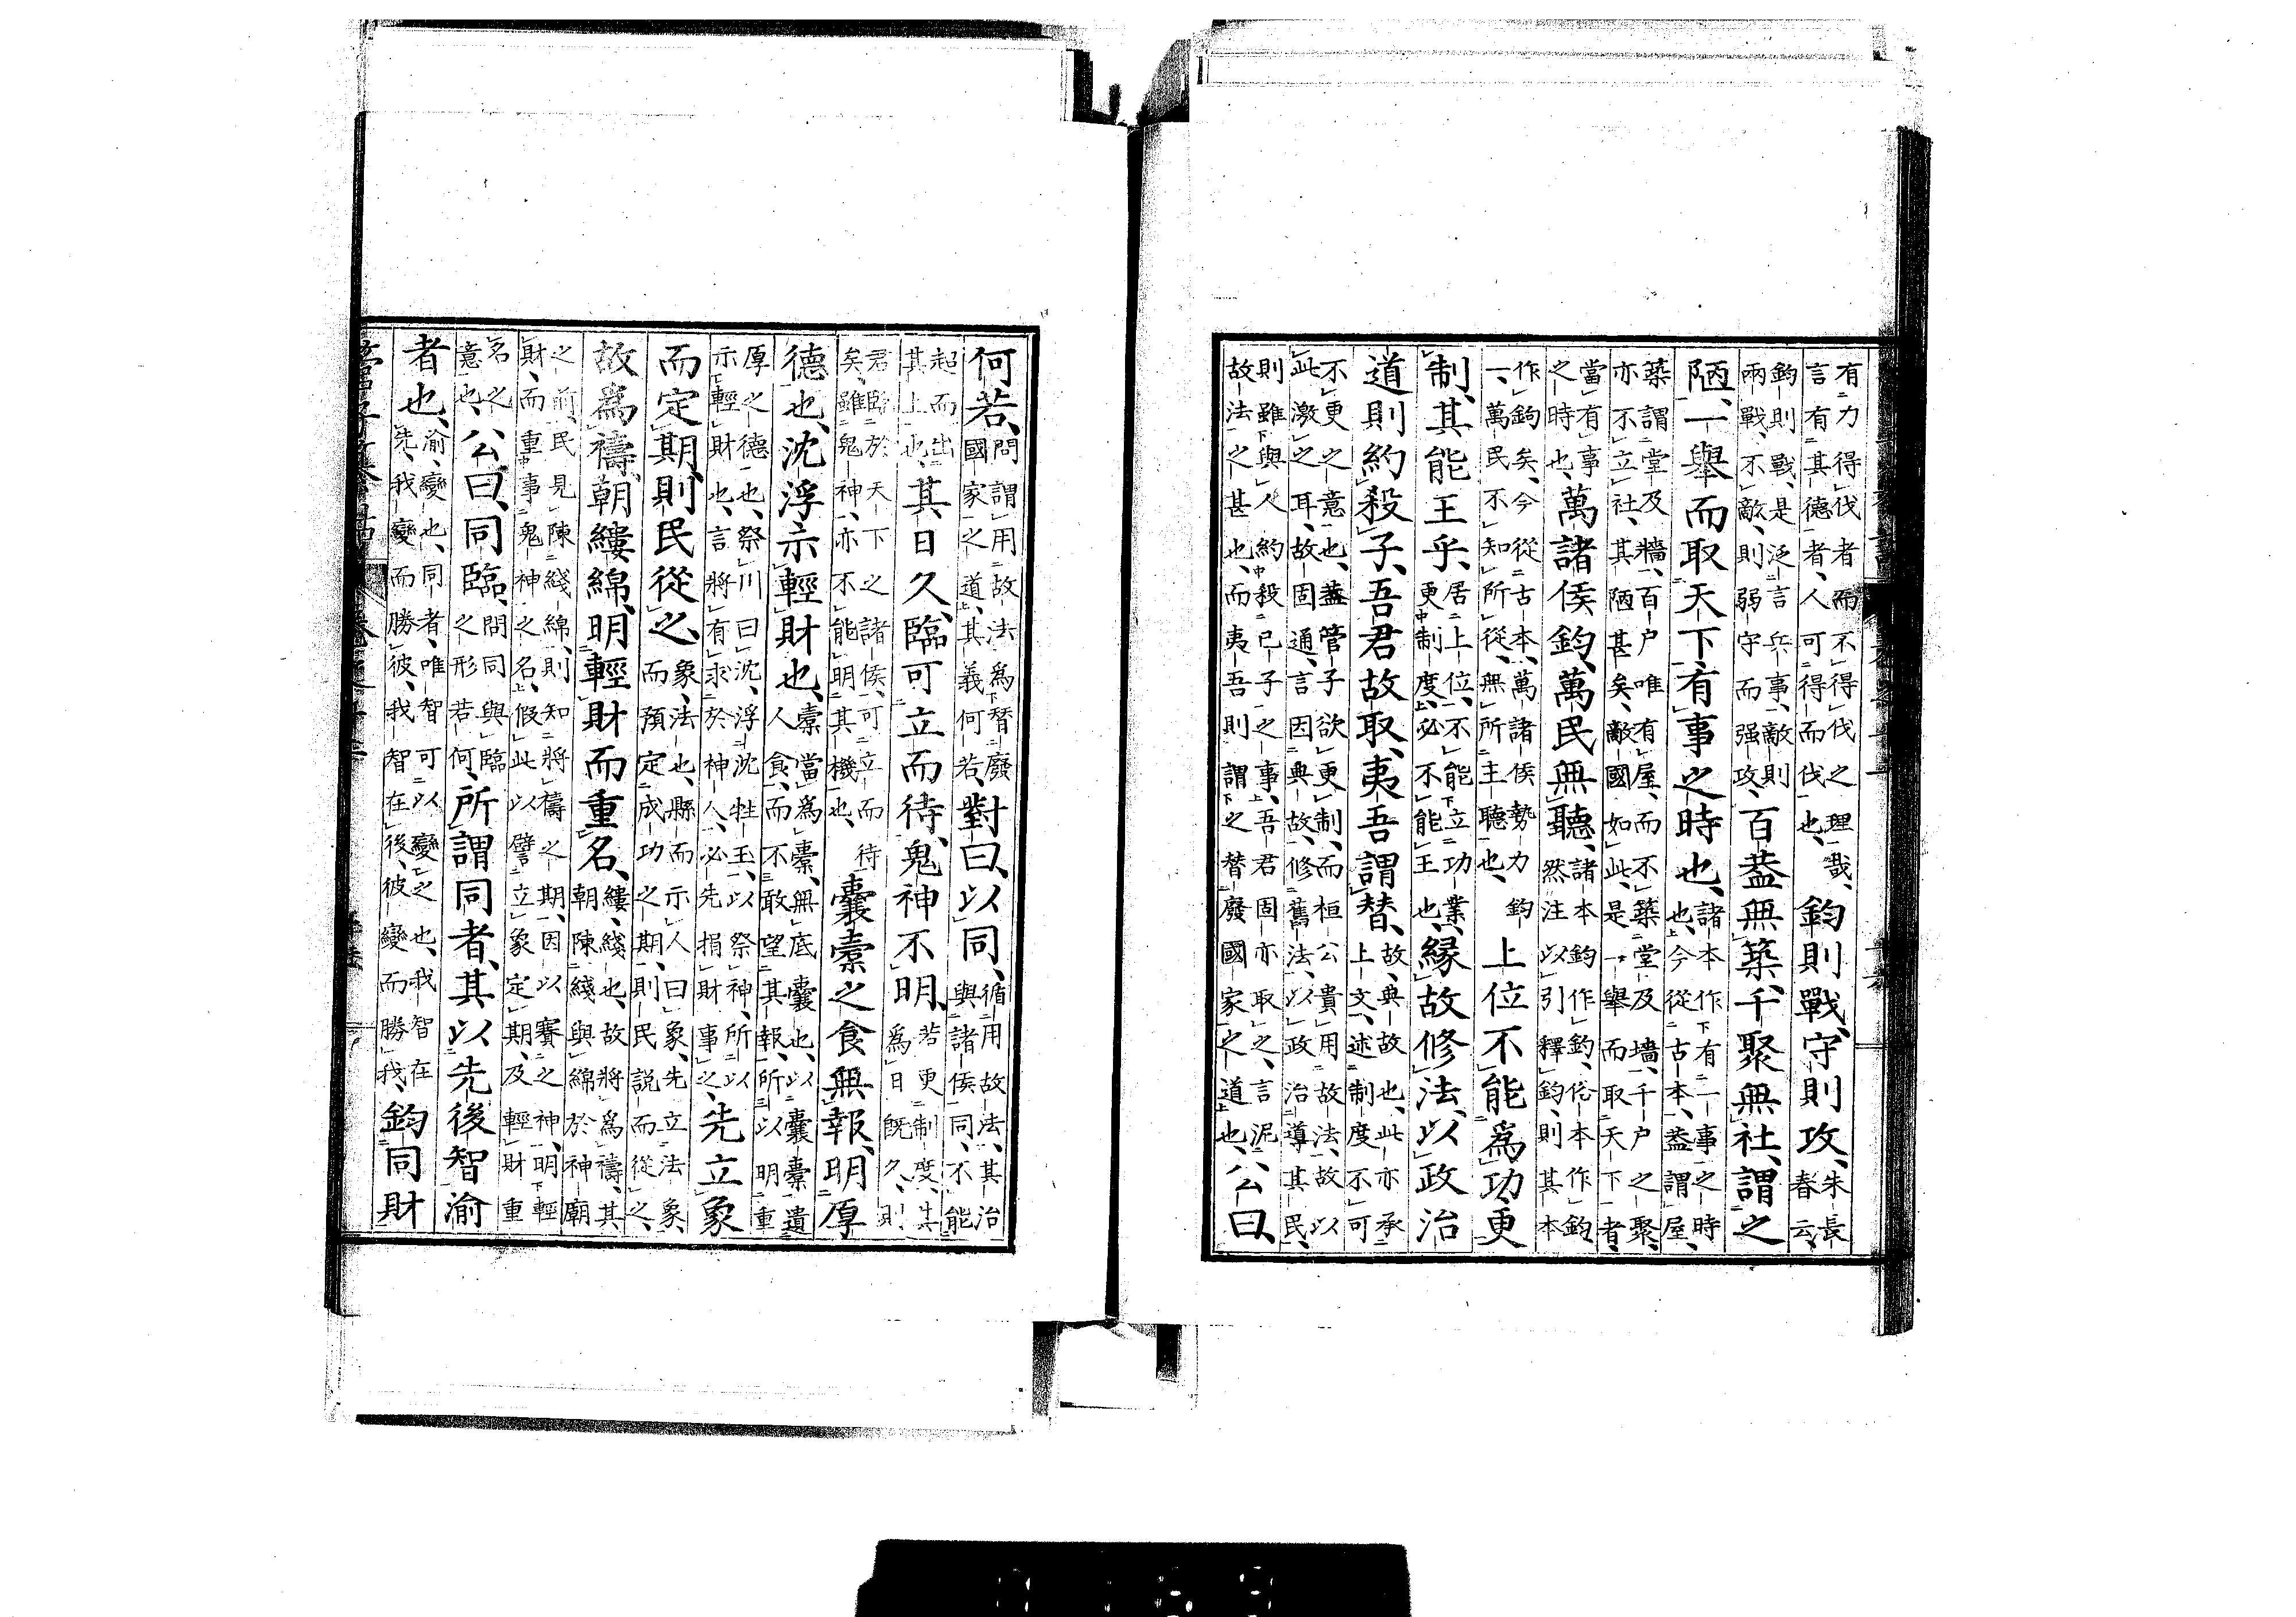 有力得伐者而不得伐之理哉、言有其德者、人可得而伐也、鈞則戰、守則攻、朱長春云、
鈞則戰、是泛言兵事、敵則兩戰、不敵、則弱守而强攻、百蓋無築、千聚無社、謂之
陋、一舉而取天下、有事之時也、諸本作有一事之時也、今從古本、蓋謂屋、
築謂堂及牆、百户唯有屋、而不築堂及墻、千户之聚、亦不立社、其陋甚矣、敵國如此、是一舉而取天下者、
當有事之時也、萬諸侯鈞、萬民無聽、諸本鈞作鈞、俗本作鈞然注以引釋鈞、則其本
作鈞矣、今從古本、萬諸侯勢力鈞一、萬民不知所從、無所主聽也、上位不能爲功更
制、其能王乎、居上位、不能立功業、更制度、必不能王也、緣故修法、以政治
道則約殺子、吾君故取、夷吾謂替、故、典故也、此亦承上文、述制度不可
不更之意也、蓋管子欲更制、而桓公貴用故法、故以此激之耳、故固通、言因典故、修舊法、以政治導其民、
則雖與人約殺己子之事、吾君固亦取之、言泥故法之甚也、而夷吾則謂之替廢國家之道也、公曰、
何若、問謂用故法爲替廢國家之道、其義何若、對曰、以同、循用故法、其治與諸侯同、不能
起而出其上也、其日久臨、可立而待、鬼神不明、若更制度、其爲日既久、則
君臨於天下之諸侯、可立而待矣、雖鬼神、亦不能明其機也、囊橐之食無報、明厚
德也、沈浮示輕財也、橐當爲橐、無底囊也、以囊橐遺人食、而不敢望其報、所以明重
厚之德也、祭川曰沈、浮沈牲玉、以祭神、所以示輕財也、言將有求於神人、必先捐財事之、先立象
而定期、則民從之、象、法也、縣而示人曰象、先立法象、而預定成功之期、則民説而從之、
故爲禱、朝縷綿、明輕財而重名、縷、綫也、故將爲禱、其朝陳綫與綿於神廟
之前、民見陳綫綿、則知將禱之期、因以賽之神、明輕財、而重事鬼神之名、假此以譬立象定期、及輕財重
名之意也、公曰、同臨、問同與臨之形若何、所謂同者、其以先後智渝
者也、渝、變也、同者、唯智可以變之也、我智在先、我變而勝彼、我智在後、彼變而勝我、鈞同財